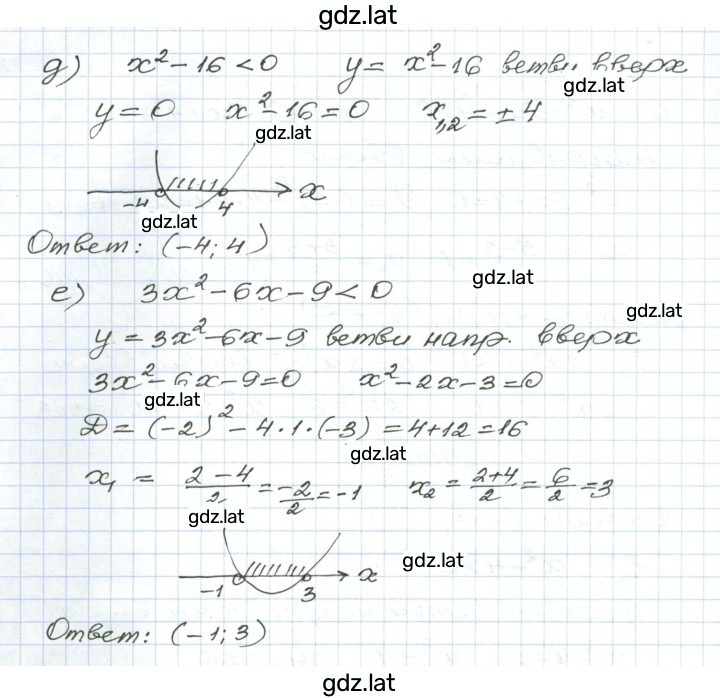 gdz.lat
д) x² - 16 < 0 y = x² - 16 ветви вверх
gdz.lat
y = 0 x² - 16 = 0 x₁,₂ = ± 4
gdz.lat
-4 4 x
gdz.lat
Ответ: (-4; 4)
gdz.lat
е) 3x² - 6x - 9 < 0
gdz.lat
y = 3x² - 6x - 9 ветви напр. вверх
3x² - 6x - 9 = 0 x² - 2x - 3 = 0
gdz.lat
D = (-2)² - 4 · 1 · (-3) = 4 + 12 = 16
gdz.lat
x₁ = (2 - 4)/2 = -2/2 = -1 x₂ = (2 + 4)/2 = 6/2 = 3
gdz.lat
gdz.lat
-1 3 x
Ответ: (-1; 3)
gdz.lat